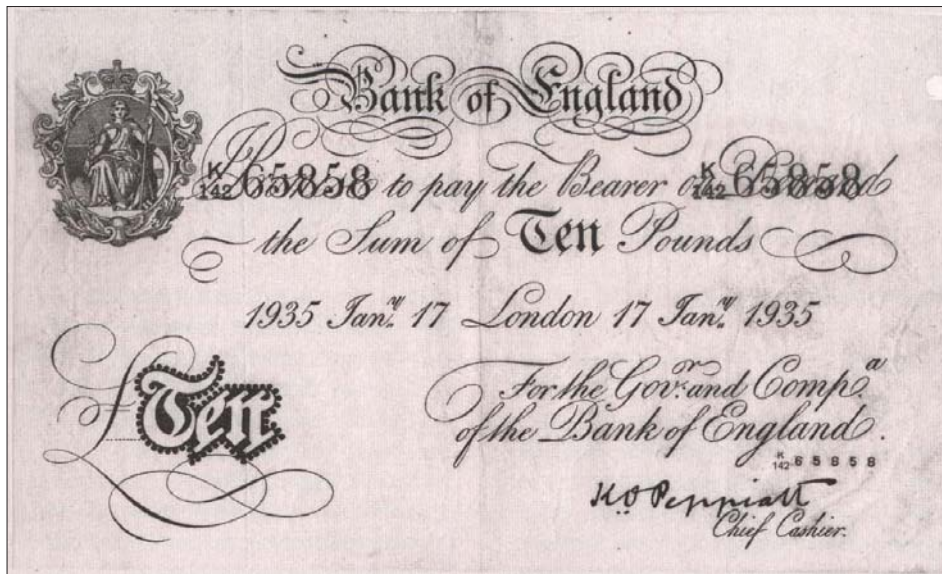 Bank of England
K
142 65858 to pay the Bearer on Demand K
142 65858
the Sum of Ten Pounds
1935 Jan.y 17 London 17 Jan.y 1935
£Ten
For the Gov.r and Comp.a
of the Bank of England.
K
142 65858
K.O. Peppiatt
Chief Cashier.